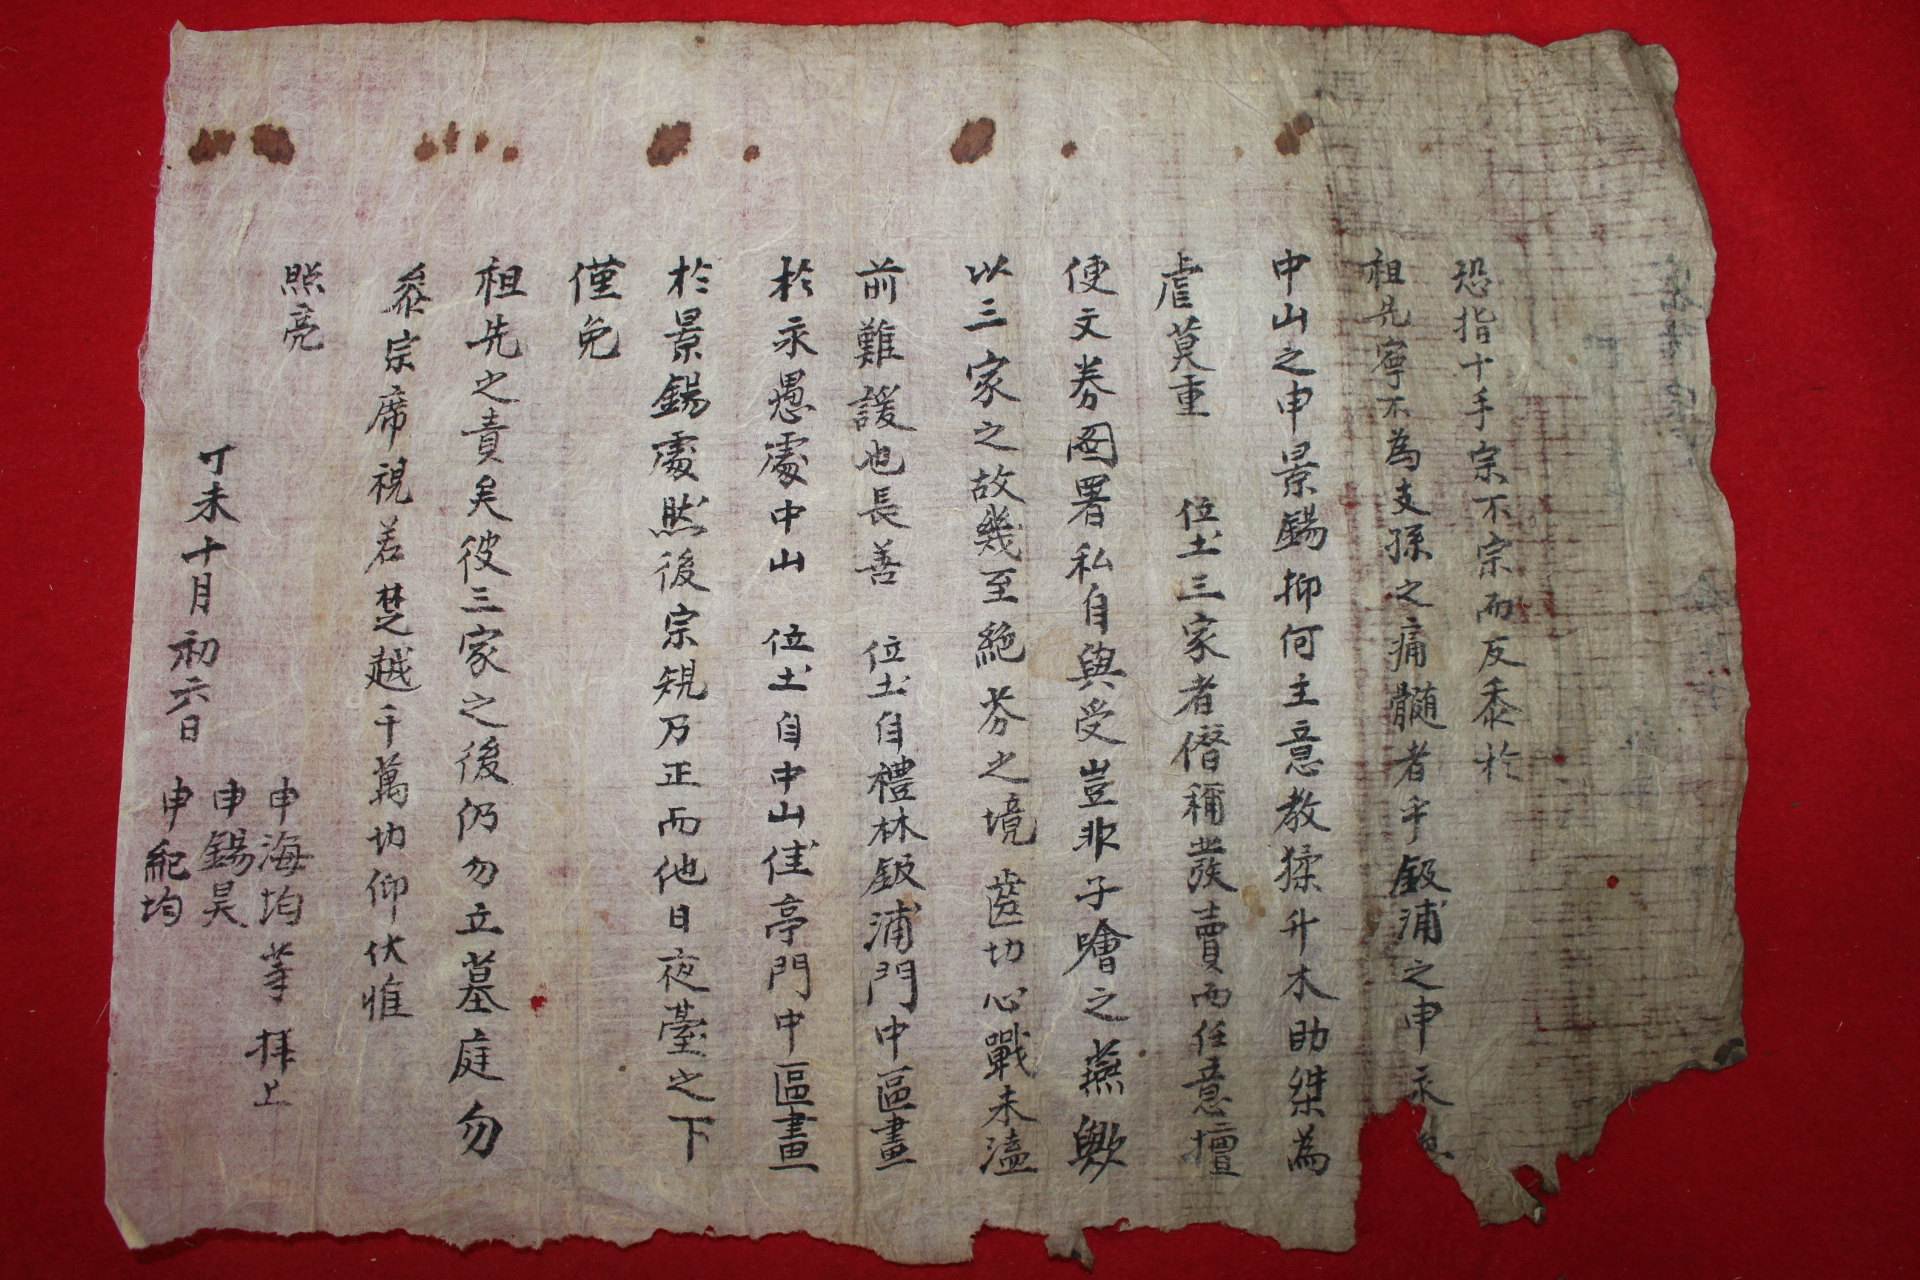 恐指十手宗不宗而反忝於
祖先寧不為支孫之痛髓者乎鈑浦之申永
中山之申景錫抑何主意教猱升木助桀為
虐莫重 位土三家者僭稱發賣而任意擅
便文券圖署私自與受豈非子噲之燕歟
以三家之故幾至絶芬之境齒切心戰未溘
前難諼也長善 位土自禮林鈑浦門中區畫
於永愚處中山 位土自中山佳亭門中區畫
於景錫處然後宗規乃正而他日夜臺之下
僅免
祖先之責矣彼三家之後仍勿立墓庭勿
叅宗席視若楚越千萬切仰伏惟
照亮
丁未十月初六日
申海均
申錫昊
申紀均
等拜上